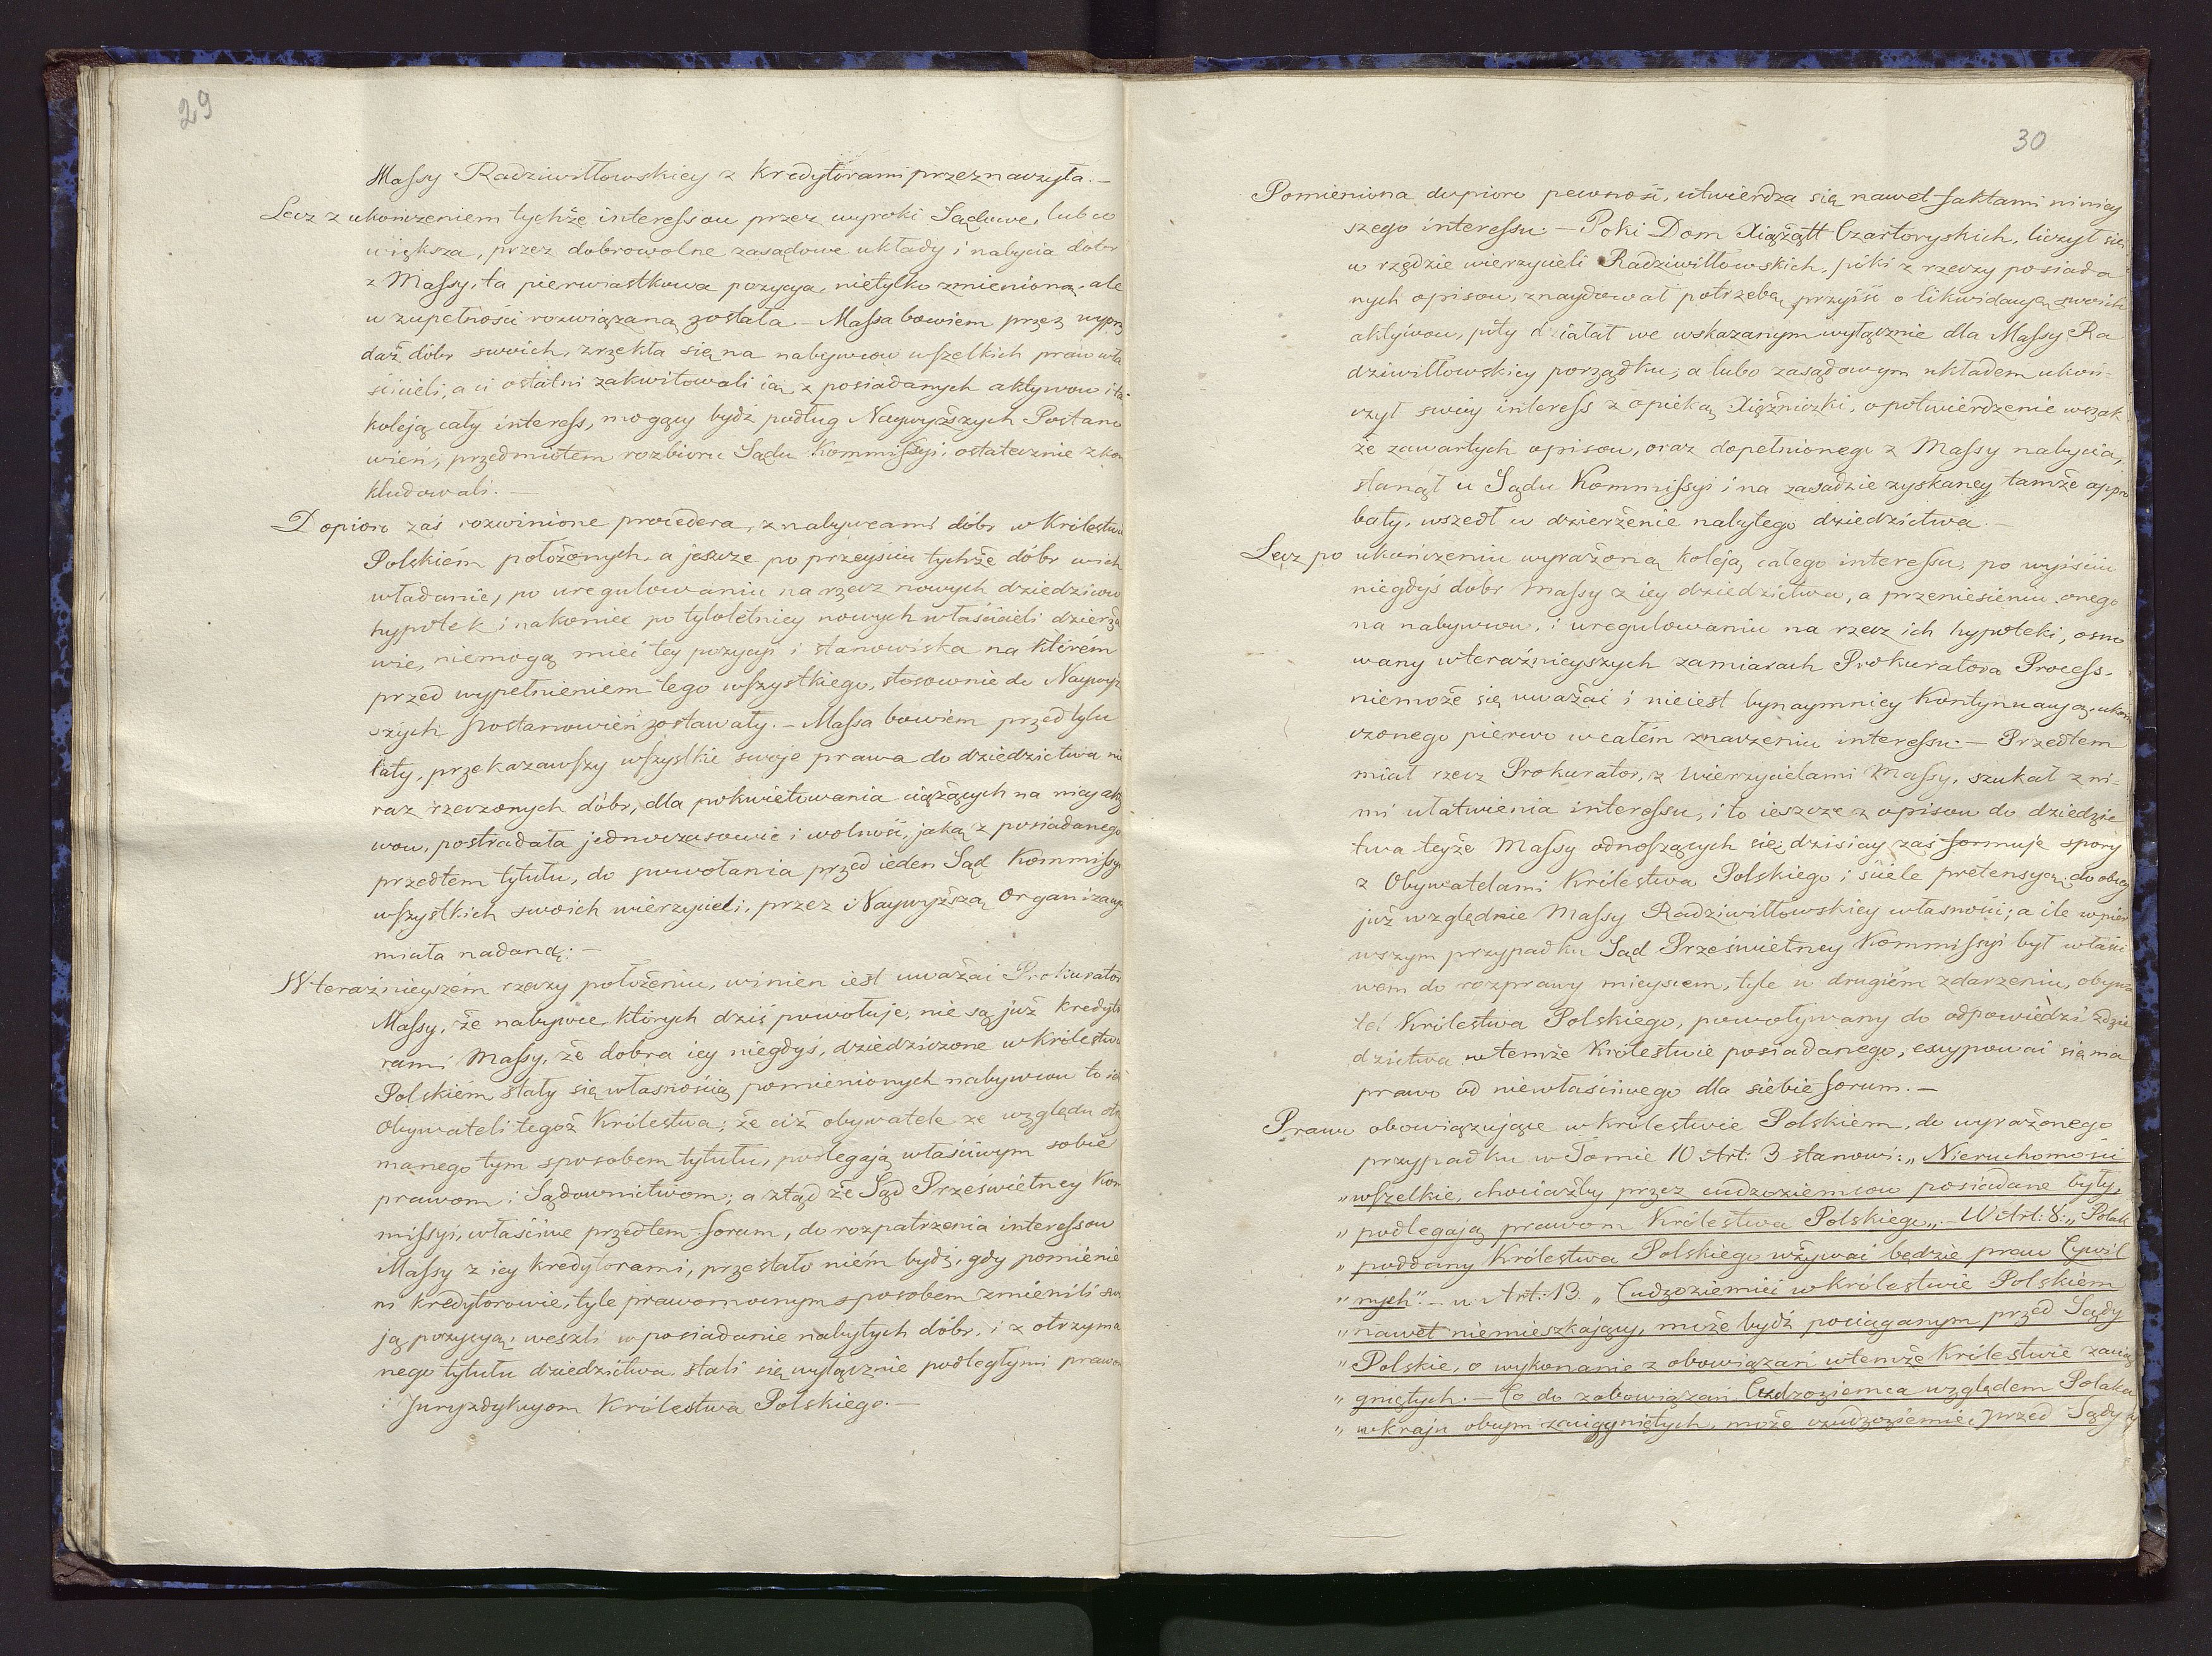 29
Massy Radziwiłłowskiey z Kredytorami przeznaczyła. —
Lecz z ukończeniem tychże interessow przez wyroki Sądowe, lub co
większa, przez dobrowolne zasądowe układy i nabycia dóbr
z Massy, ta pierwiastkowa pozycya, nietylko zmieniona, ale
w zupełności rozwiązaną została. — Massa bowiem przez wyprz
daż dóbr swoich, zrzekła się na nabywcow wszelkich praw wła
ścicieli, a ci ostatni zakwitowali ią z posiadanych aktywow i tą
koleją cały interess, mogący bydź podług Naywyższych Postano
wień, przedmiotem rozbioru Sądu Kommissyi, ostatecznie zkon
kludowali. —
Dopioro zaś rozwinione procedera, z nabywcami dóbr w Królestwie
Polskiém położonych, a jeszcze po przeyściu tychże dóbr w ich
władanie, po uregulowaniu na rzecz nowych dziedzicow
hypotek i nakoniec po tyloletniey nowych właścicieli dzierża
wie, niemogą mieć tey pozycyi i stanowiska na którém
przed wypełnieniem tego wszystkiego, stosownie do Naywyż
szych postanowień zostawały. — Massa bowiem przed tylu
laty, przekazawszy wszystkie swoje prawa do dziedzictwa nie
raz rzeczonych dóbr, dla pokwitowania ciążących na niey akty
wow, postradała jednoczasowie i wolność, jaką z posiadanego
przedtem tytułu, do powołania przed ieden Sąd Kommissyi
wszystkich swoich wierzycieli, przez Naywyższą Organizacyą
miała nadaną: —
W teraźnieyszém rzeczy położeniu, winien iest uważać Prokurator
Massy, że nabywce, których dziś powołuje, nie są już kredyto
rami Massy, że dobra iey niegdyś, dziedziczone w Królestwie
Polskiém stały się własnością pomienionych nabywcow to iest
Obywateli tegoż Królestwa; że ciż obywatele ze względu otrzy
manego tym sposobem tytułu, podlegają właściwym sobie
prawom i Sądownictwom; a ztąd że Sąd Prześwietney Kom
missyi, właściwe przedtem forum, do rozpatrzenia interessow
Massy z iey kredytorami, przestało niém bydź, gdy pomienie
ni kredytorowie, tyle prawomocnym sposobem zmienili swo
ją pozycyą, weszli w posiadanie nabytych dóbr, i z otrzyma
nego tytułu dziedzictwa, stali się wyłącznie podległymi prawom
i Juryzdykcyom Królestwa Polskiego. —
30
Pomieniona dopioro pewność, utwierdza się nawet faktami niniey
szego interessu: — Poki Dom Xiążątt Czartoryskich, liczył się
w rzędzie wierzycieli Radziwiłłowskich, póki z rzeczy posiada
nych opisow, znaydował potrzebę przyiść o likwidacyą swoich
aktywow, póty działał we wskazanym wyłącznie dla Massy Ra
dziwiłłowskiey porządku; a lubo zasądowym układem ukoń-
czył swóy interess z opieką Xiężniczki, o potwierdzenie wszak
że zawartych opisow, oraz dopełnionego z Massy nabycia,
stanął u Sądu Kommissyi i na zasadzie zyskaney tamże appro
baty, wszedł w dzierżenie nabytego dziedzictwa. —
Lecz po ukończeniu wyrażoną koleją całego interessu, po wyiściu
niegdyś dóbr Massy z iey dziedzictwa, a przeniesieniu onego
na nabywcow, i uregulowaniu na rzecz ich hypoteki, osno
wany w teraźnieyszych zamiarach Prokuratora Process,
niemoże się uważać i nieiest bynaymniey kontynuacyą, ukoń
czonego pierwo w całém znaczeniu interessu. — Przedtem
miał rzecz Prokurator, z wierzycielami Massy, szukał z ni-
mi ułatwienia interessu, i to ieszcze z opisow do dziedzic
twa teyże Massy odnoszących się; dzisiay zaś formuje spory
z Obywatelami Królestwa Polskiego i ściele pretensyą do obcey
już względnie Massy Radziwiłłowskiey własności; a ile w pier
wszym przypadku Sąd Prześwietney Kommissyi był właści
wem do rozprawy mieyscem, tyle w drugiém zdarzeniu, obywa
tel Królestwa Polskiego, powoływany do odpowiedzi z dzie
dzictwa w temże Królestwie posiadanego, excypować się ma
prawo od niewłaściwego dla siebie forum. —
Prawo obowiązujące w Królestwie Polskiem, do wyrażonego
przypadku w Tomie 10 Art: 3 stanowi: „Nieruchomości
„wszelkie, chociażby przez cudzoziemcow posiadane były,
„podlegają prawom Królestwa Polskiego„ — W Art: 8: „Polak
„poddany Królestwa Polskiego używać będzie praw Cywil
„nych". — w Art: 13. „Cudzoziemiec w Królestwie Polskiém
„nawet niemieszkający, może bydź pociąganym przed Sądy
„Polskie, o wykonanie z obowiązań w temże Królestwie zacią
„gniętych. — Co do zobowiązań Cudzoziemca względem Polaka
„w kraju obcym zaciągniętych, może cudzoziemiec przed Sądy